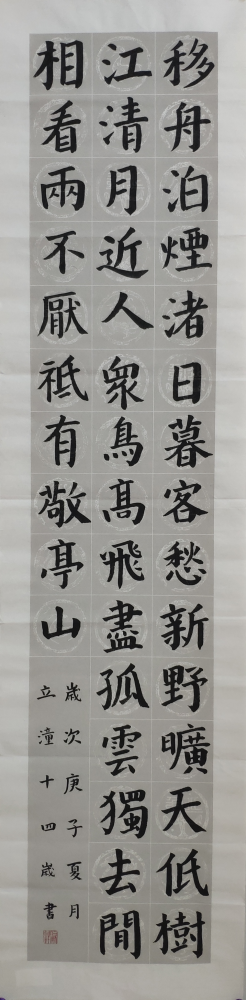 移舟泊煙渚日暮客愁新野曠天低樹
江清月近人衆鳥髙飛盡孤雲獨去閒
相看兩不厭祗有敬亭山
歲次庚子夏月
立潼十四歲書